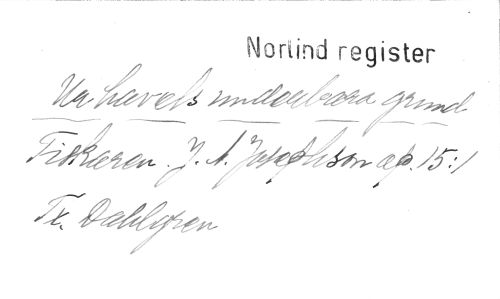 Norlind register
Ur havets underbara grund
Fiskaren. J. A. Josephson op. 15:1
Tx. Dahlgren